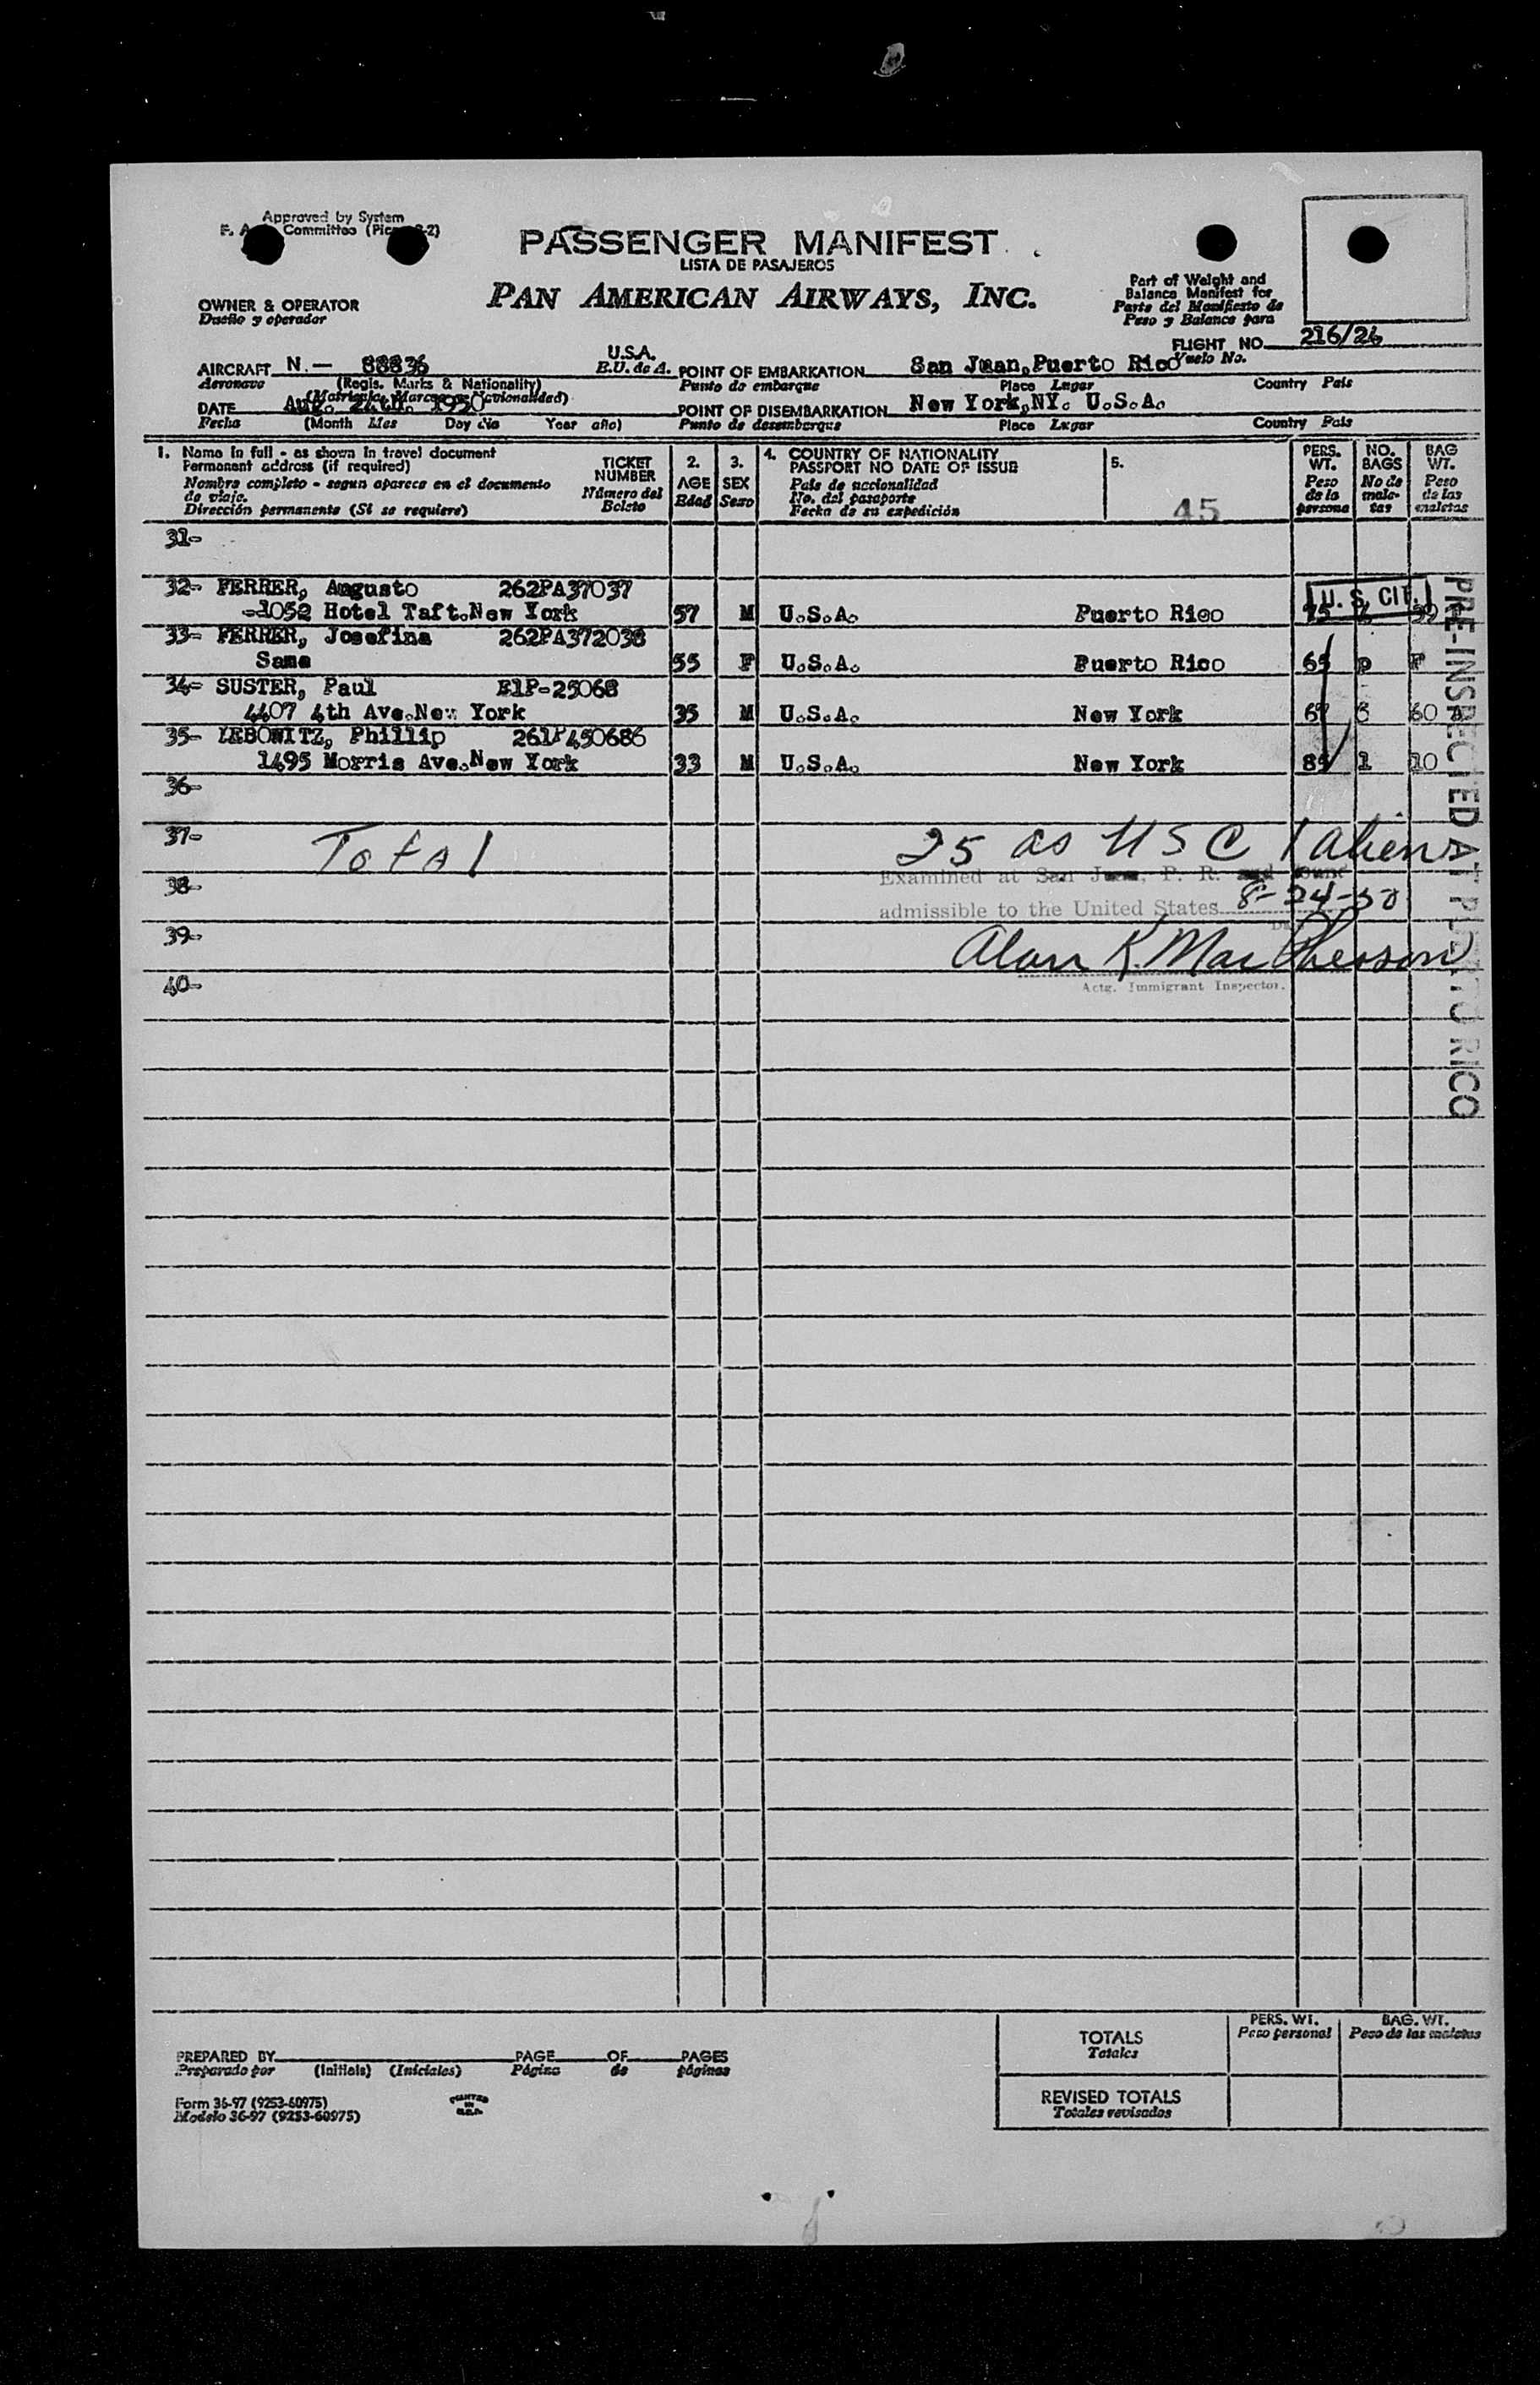 Approved by System
Committee
PASSENGER MANIFEST
LISTA DE PASAJEROS
PAN AMERICAN AIRWAYS, INC.
OWNER & OPERATOR
Dueño y operador
Part of Weight and
Balance Manifest for
Parte del Manifiesto de
Peso y Balance para
FLIGHT NO. 216/26
Vuelo No.
AIRCRAFT N.— 88836 U.S.A.
Aeronave (Regis. Marks & Nationality) E.U. de A.
POINT OF EMBARKATION San Juan,Puerto Rico
Punto de embarque Place Lugar Country Pais
DATE Aug. 24th. 1950
Fecha (Month Mes Day Dia Year año)
POINT OF DISEMBARKATION New York,NY. U.S.A.
Punto de desembarque Place Lugar Country Pais
1. Name in full - as shown in travel document
Permanent address (if required)
Nombre completo - segun aparece en el documento
de viaje.
Dirección permanente (Si se requiere)
TICKET
NUMBER
Número del
Boleto
2.
AGE
Edad
3.
SEX
Sexo
4. COUNTRY OF NATIONALITY
PASSPORT NO DATE OF ISSUE
Pais de nacionalidad
No. del pasaporte
Fecha de su expedición
5.
45
PERS.
WT.
Peso
de la
persona
NO.
BAGS
No de
male-
tas
BAG
WT.
Peso
de las
maletas
31-
32- FERRER, Augusto 262PA37037
-1052 Hotel Taft.New York 57 M U.S.A. Puerto Rico 75
U. S. CIT.
33- FERRER, Josefina 262PA372038
Same 55 F U.S.A. Puerto Rico 65 P P
34- SUSTER, Paul E1P-25068
4407 4th Ave.New York 35 M U.S.A. New York 60
35- LEBOWITZ, Phillip 261P450686
1495 Morris Ave.New York 33 M U.S.A. New York 85 1 10
36-
37- Total 25 as USC 1 alien
38-
Examined at San Juan, P. R. and found
admissible to the United States 8-24-50
39-
Alan K. MacPherson
Actg. Immigrant Inspector.
40-
PRE-INSPECTED AT PUERTO RICO
PREPARED BY PAGE OF PAGES
Preparado por (Initials) (Iniciales) Página de páginas
Form 36-97 (9253-60975)
Modelo 36-97 (9253-60975)
PRINTED
IN
U.S.A.
PERS. WT.
Peso personal
BAG. WT.
Peso de las maletas
TOTALS
Totales
REVISED TOTALS
Totales revisados